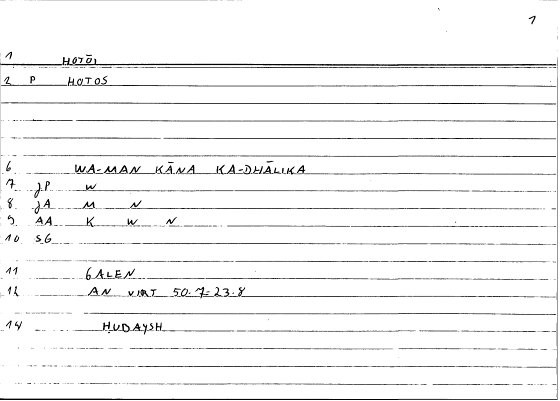 1
1 HOTŌI
2 P HOTOS
6 WA-MAN KĀNA KA-DHĀLIKA
7 JP W
8 JA M N
9 AA K W N
10 SG
11 GALEN
12 AN VIRT 50.7-23.8
14 ḤUDAYSH